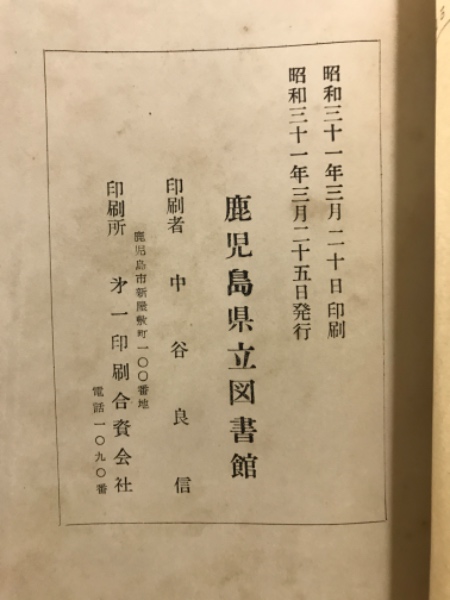 昭和三十一年三月二十日印刷
昭和三十一年三月二十五日発行
鹿児島県立図書館
印刷者 中谷良信
鹿児島市新屋敷町一〇〇番地
印刷所 㐧一印刷合資会社
電話一〇九〇番